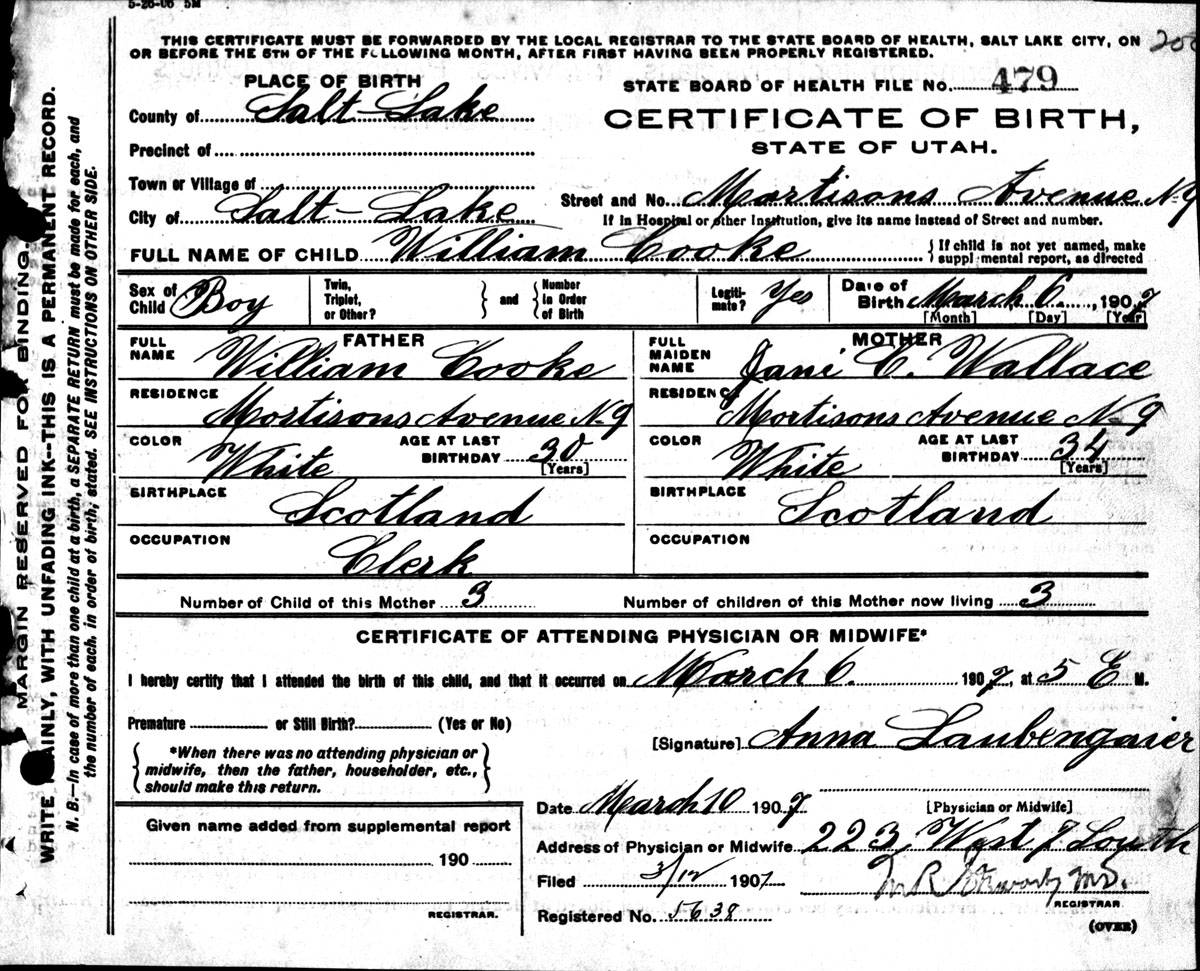 5-26-06 5M
THIS CERTIFICATE MUST BE FORWARDED BY THE LOCAL REGISTRAR TO THE STATE BOARD OF HEALTH, SALT LAKE CITY, ON
OR BEFORE THE 5TH OF THE FOLLOWING MONTH, AFTER FIRST HAVING BEEN PROPERLY REGISTERED.
PLACE OF BIRTH
STATE BOARD OF HEALTH FILE No. 479
County of Salt-Lake
CERTIFICATE OF BIRTH,
Precinct of
STATE OF UTAH.
Town or Village of
Street and No. Mortisons Avenue N-9
City of Salt-Lake
If in Hospital or other Institution, give its name instead of Street and number.
FULL NAME OF CHILD William Cooke
{ If child is not yet named, make
suppl mental report, as directed
Sex of Child Boy
Twin, Triplet, or Other? } and { Number in Order of Birth
Legiti-mate? Yes
Date of Birth March 6., 1907
[Month] [Day] [Year]
FATHER
FULL NAME William Cooke
RESIDENCE
Mortisons Avenue N-9
COLOR White
AGE AT LAST BIRTHDAY 30
[Years]
BIRTHPLACE
Scotland
OCCUPATION
Clerk
MOTHER
FULL MAIDEN NAME Jani C. Wallace
RESIDENC
Mortisons Avenue N-9
COLOR White
AGE AT LAST BIRTHDAY 34
[Years]
BIRTHPLACE
Scotland
OCCUPATION
Number of Child of this Mother 3
Number of children of this Mother now living 3
CERTIFICATE OF ATTENDING PHYSICIAN OR MIDWIFE*
I hereby certify that I attended the birth of this child, and that it occurred on March 6. 1907, at 5 E M.
Premature or Still Birth? (Yes or No)
[Signature] Anna Laubengaier
{ *When there was no attending physician or
midwife, then the father, householder, etc.,
should make this return. }
Date March 10 1907
[Physician or Midwife]
Given name added from supplemental report
Address of Physician or Midwife 223, West 7 South
190
Filed 3/12 1907
M.D.
REGISTRAR.
REGISTRAR.
Registered No. 5638
(OVER)
MARGIN RESERVED FOR BINDING.
WRITE PLAINLY, WITH UNFADING INK--THIS IS A PERMANENT RECORD.
N. B.--In case of more than one child at a birth, a SEPARATE RETURN must be made for each, and
the number of each, in order of birth, stated. SEE INSTRUCTIONS ON OTHER SIDE.